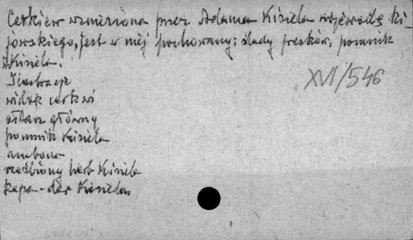 Cerkiew wzniesiona przez Adama Kisiela wojewodę ki-
jowskiego, jest w niej pochowany; ślady fresków, pomnik
A Kisiela.
Ilustracje
widok cerkwi
ołtarz główny
pomnik Kisiela
ambona
rzeźbiony herb Kisiela
kapa - dar Kisielów
XVI/546